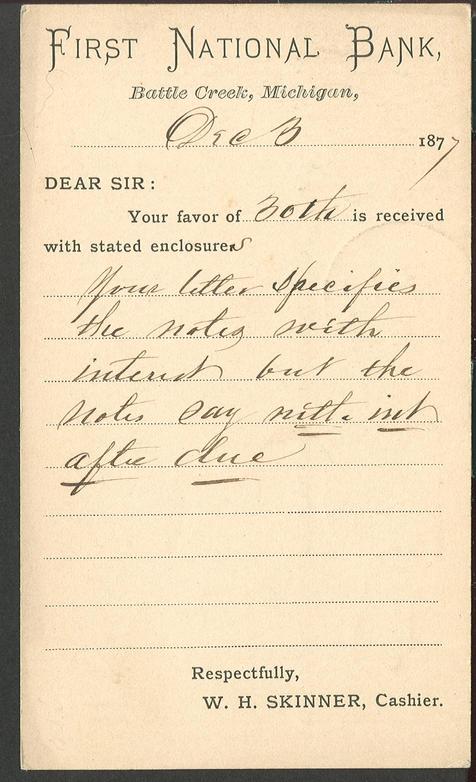 FIRST NATIONAL BANK,
Battle Creek, Michigan,
Dec 3 1877
DEAR SIR:
Your favor of 30th is received
with stated enclosures
Your letter specifies
the notes with
interest but the
notes say with int
after due
Respectfully,
W. H. SKINNER, Cashier.